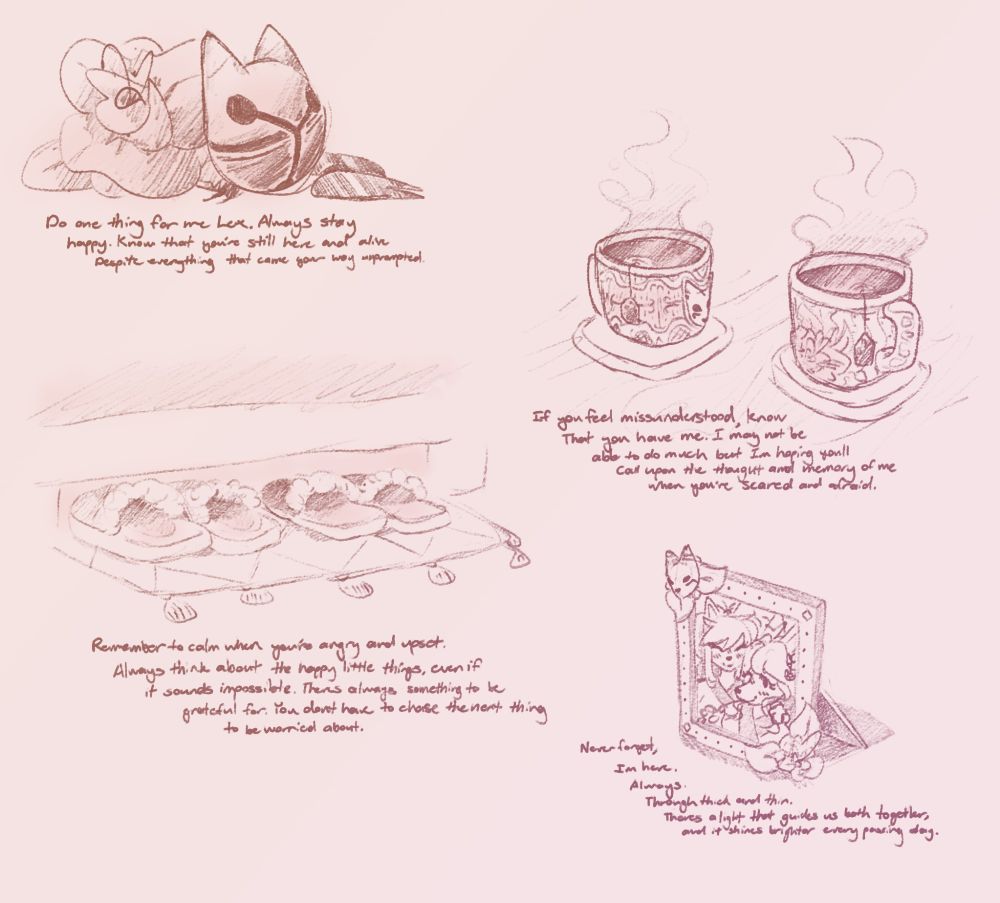 Do one thing for me Lex. Always stay
happy. Know that you're still here and alive
Despite everything that came your way unprompted.
If you feel missunderstood, know
That you have me. I may not be
able to do much but I'm hoping you'll
Call upon the thought and memory of me
when you're scared and afraid.
Remember to calm when you're angry and upset.
Always think about the happy little things, even if
it sounds impossible. Theres always something to be
grateful for. You dont have to chase the next thing
to be worried about.
Never forget,
I'm here.
Always.
Through thick and thin.
Theres a light that guides us both together,
and it shines brighter every passing day.